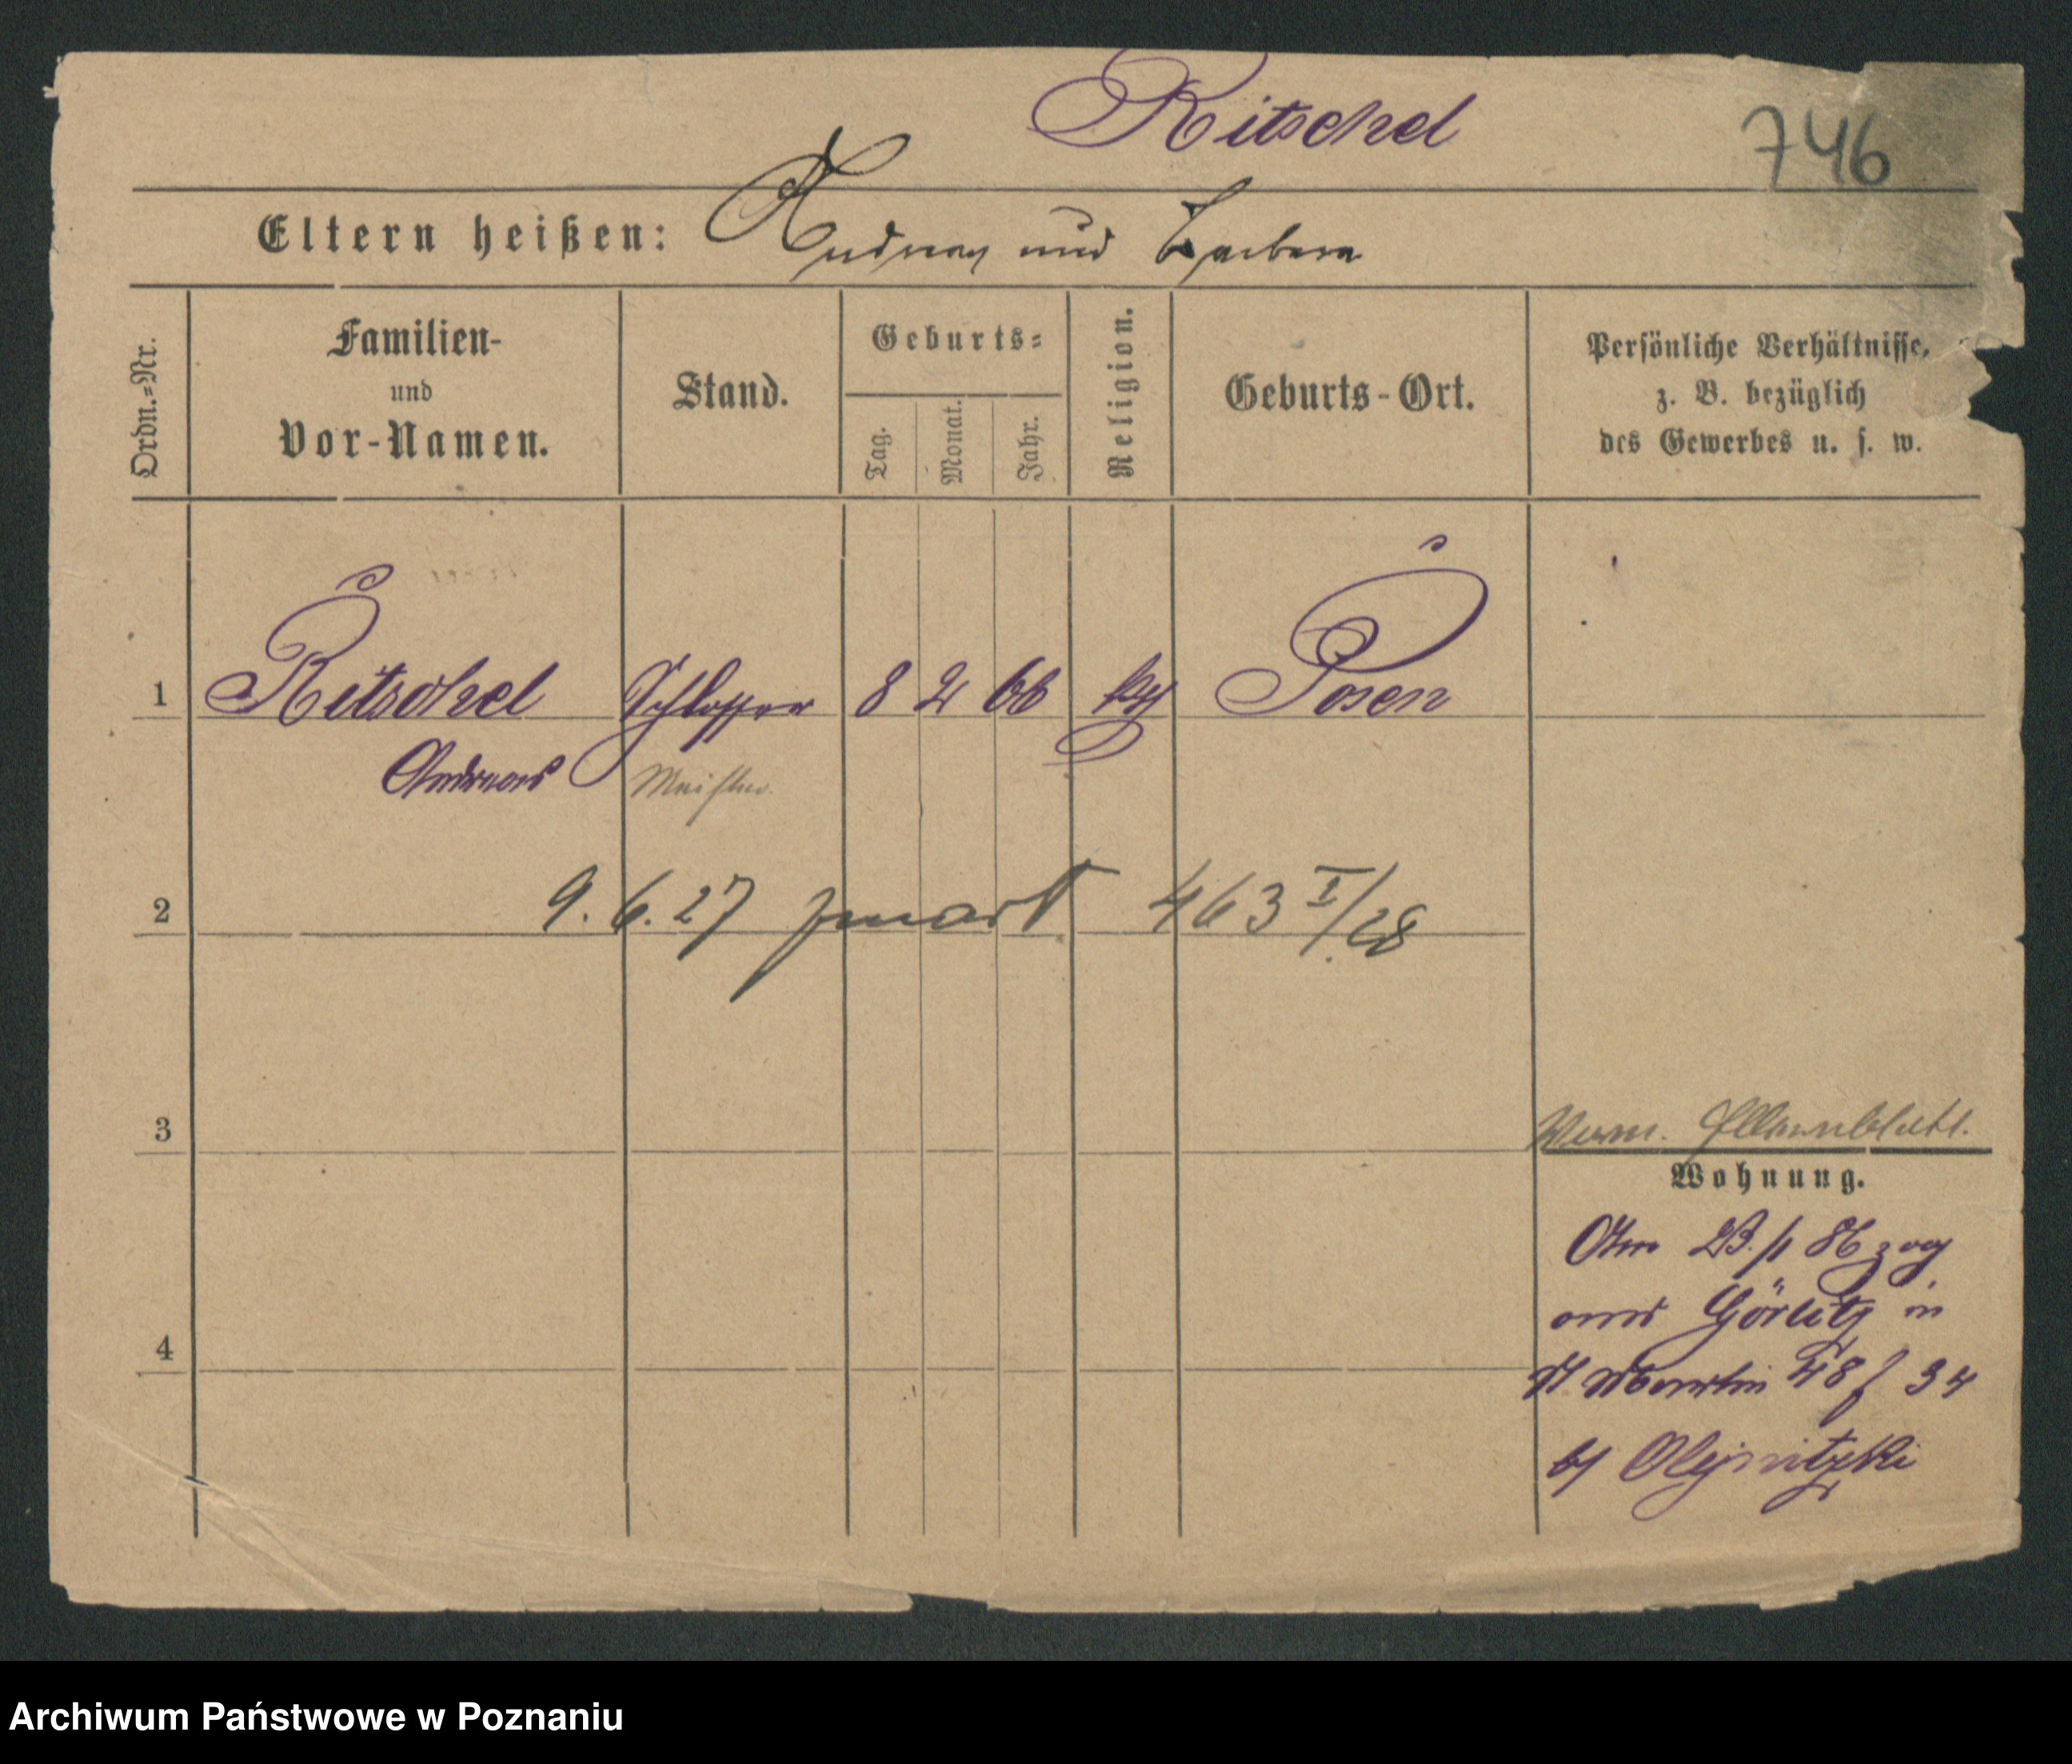 Ritschel
746
Eltern heißen: Andreas und Barbara
Ordn.=Nr.
Familien-
und
Vor-Namen.
Stand.
Geburts=
Tag.
Monat.
Jahr.
Religion.
Geburts-Ort.
Persönliche Verhältnisse,
z. B. bezüglich
des Gewerbes u. s. w.
1 Ritschel Schlosser 8 2 66 kth Posen
Andreas Meister.
2 9.6.27 zmarł 463 I/28
3
Wohnung.
Am 23./1 86 zog
aus Görlitz in
4
St Martin 48 f 34
b/ Olejnitzki
Archiwum Państwowe w Poznaniu